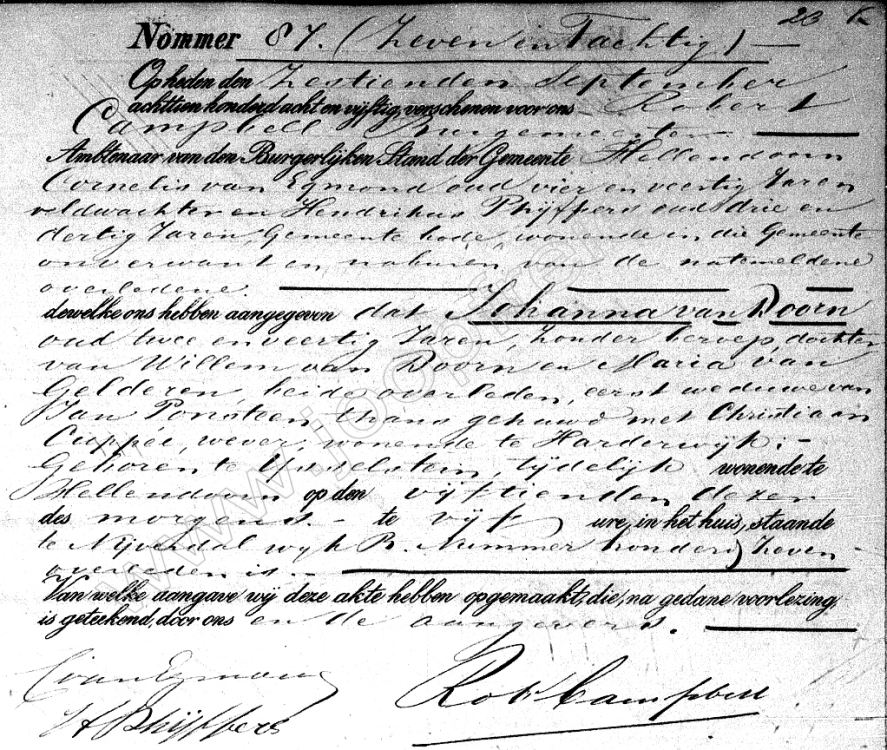 23 
Nòmmer 87. (Zeven en Tachtig) —
Op heden den Zestienden September
achttien honderd acht en vijftig, verschenen voor ons Robert
Campbell Burgemeester
Ambtenaar van den Burgerlijken Stand der Gemeente Hellendoorn
Cornelis van Egmond oud vier en veertig Jaren
veldwachter en Hendrikus Phijffers oud drie en
dertig Jaren, Gemeente bode, wonende in die Gemeente
onverwant en naburen van de natemeldene
overledene.
dewelke ons hebben aangegeven dat Johanna van Doorn
oud twee en veertig Jaren, zonder beroep, dochter
van Willem van Doorn en Maria van
Gelderen, beide overleden, eerst weduwe van
Jan Ponsteen thans gehuwd met Christiaan
Cuppée, wever, wonende te Harderwijk; —
Geboren te IJsselstein, tijdelijk wonende te
Hellendoorn op den vijftienden dezer
des morgens. — te vijf ure, in het huis, staande
te Nijverdal wyk B. Nummer honderd Zeven
overleden is. —
Van welke aangave wij deze akte hebben opgemaakt, die, na gedane voorlezing,
is geteekend, door ons en de aangevers.
C van Egmond
H Phijffers
Rob Campbell